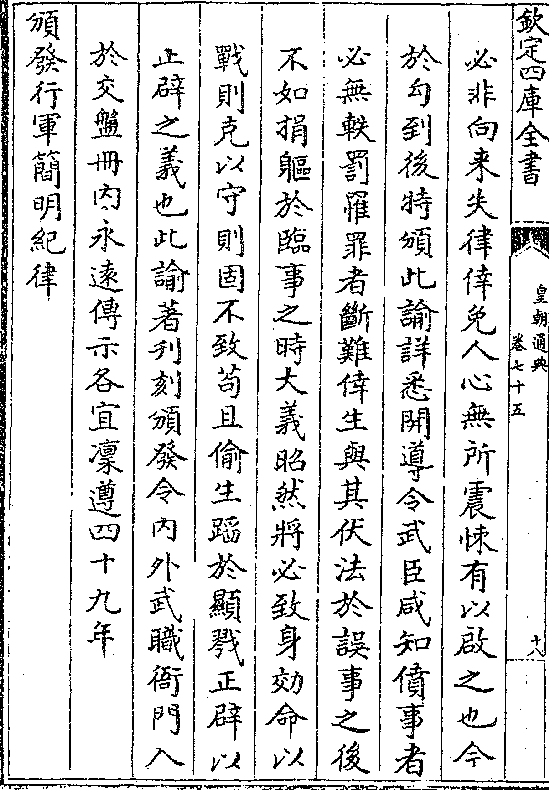 欽定四庫全書
皇朝通典
卷七十五
十八
必非向来失律倖免人心無所震悚有以啟之也今
於勾到後特頒此諭詳悉開導令武臣咸知僨事者
必無軼罰罹罪者斷難倖生與其伏法於誤事之後
不如捐軀於臨事之時大義昭然將必致身効命以
戰則克以守則固不致苟且偷生蹈於顯戮正辟以
止辟之義也此諭著刋刻頒發令内外武職衙門入
於交盤冊内永逺傳示各宜凜遵四十九年
頒發行軍簡明紀律